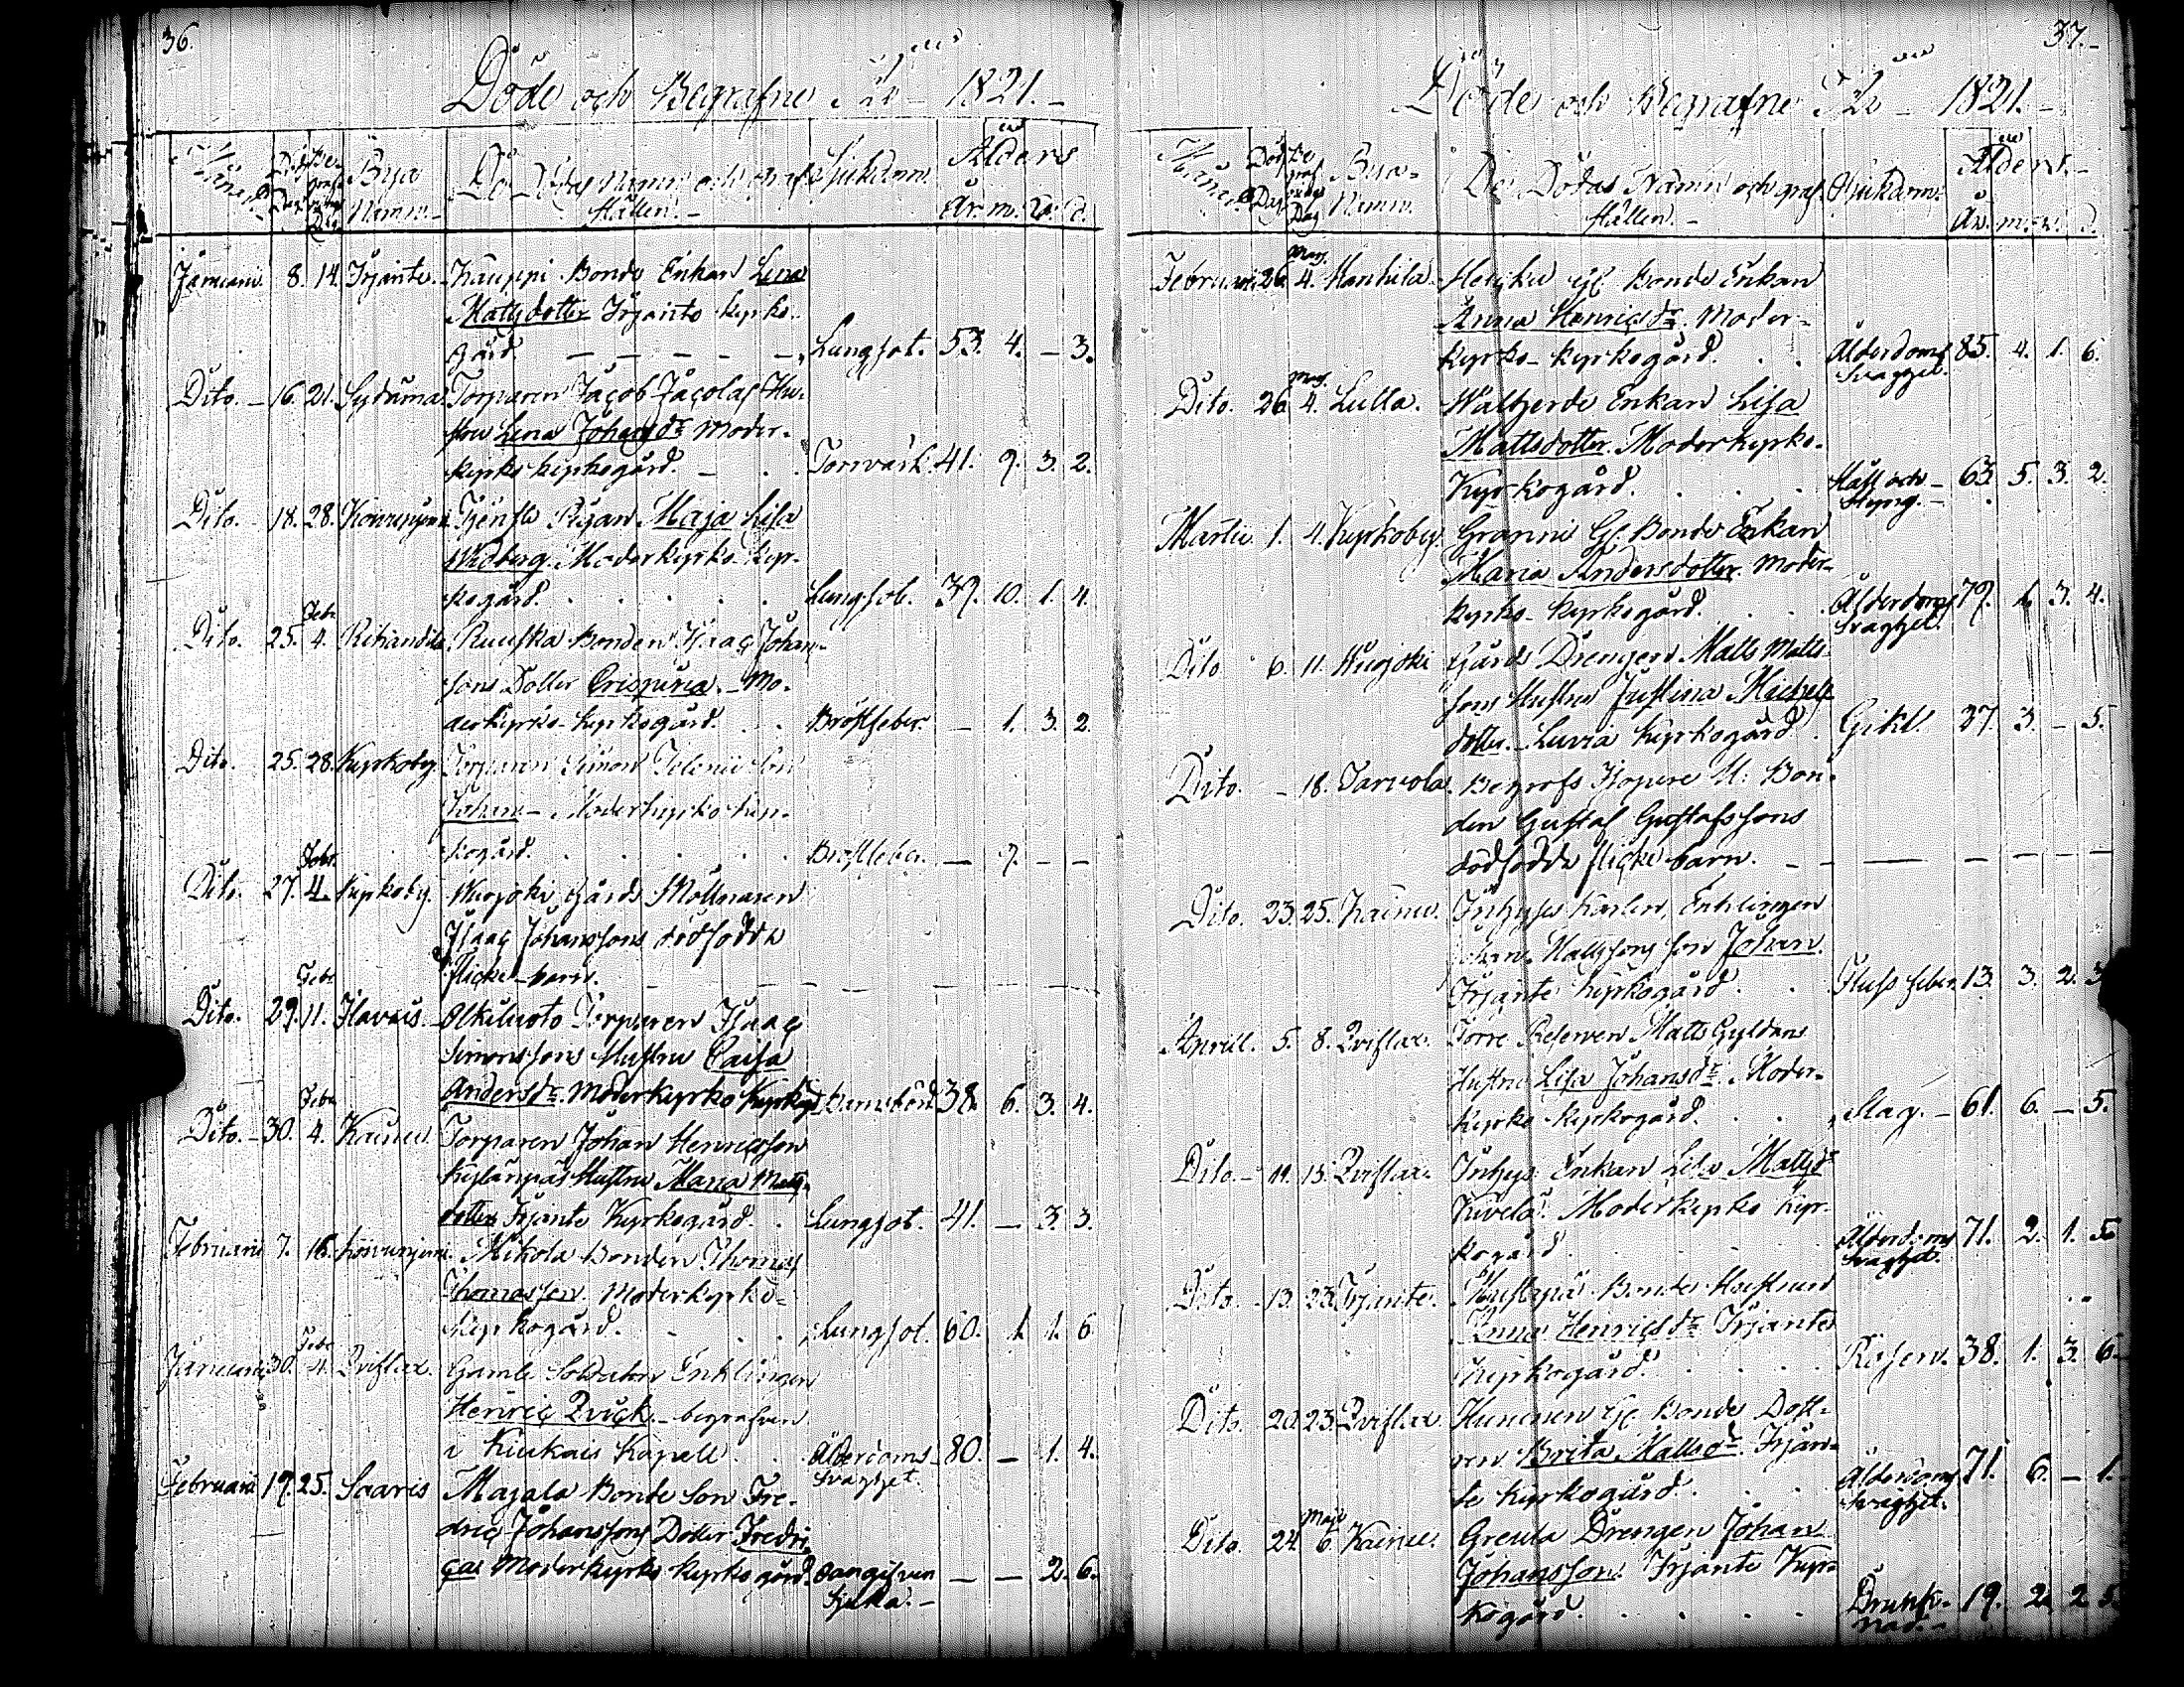 36.
Döde och Begrafne År 1821.
Månad Död Dag Begrafnings Dag Bya Namn De Dödas Namn och graf Ställen. Sjukdom. Ålders År. m. v. d.
Januarii 8. 14. Irjante. Kauppi Bonde Enkan Lena
Mattsdotter Irjante Kyrko-
gård. Lungsot. 53. 4. – 3.
Dito. 16. 21. Sydänma. Torparen Jacob Jacobss Hu-
stru Lena Johansdr Moder-
kyrko kyrkogård. Torrvärk. 41. 9. 3. 2.
Dito. 18. 28. Tjenste Pigan Maja Lisa
Widberg. Moderkyrko Kyr-
kogård. Lungsot. 39. 10. 1. 4.
Dito. 25. Febr. 4. Rihiandila Ruuska Bonden Isaac Johans-
sons Dotter Crispina. Mo-
derkyrko-kyrkogård. Bröstfeber. – 1. 3. 2.
Dito. 25. 28. Kyrkoby. Torparen Simon Son
Johan – Moderkyrko Kyr-
kogård. Bröstfeber. – 9. – –
Dito. 27. Febr. 4. Kyrkoby. Wuojoki Gårds Möllnaren
Isaac Johanssons dödfödda
flicke-barn.
Dito. 29. Febr. 11. Ilavais. Olkiluoto Torparen Isaac
Simonssons Hustru Caisa
Andersdr. Moderkyrko Kyrkog. Barnsbörd 38. 6. 3. 4.
Dito. 30. Febr. 4. Kainu. Torparen Johan Henricsson
Hustru Maria Matts-
dotter Irjante Kyrkogård. Lungsot. 41. – 3. 3.
Februarii 7. 16. Mikola Bonden Thomas
Thomasson. Moderkyrko-
kyrkogård. Lungsot. 60. 1. 1. 6
Januarii 30. Febr. 4. Qviflax. Gamle Soldaten Enklingen
Henric Quick – begrafven
i Kiukais Kapell. Ålderdoms svaghet. 80. – 1. 4.
Februarii 19. 25. Saaris Majala Bonde Son Fre-
dric Johanssons Dotter Fredri-
ca Moderkyrko kyrkogård. Oangifven Sjuka. – – 2. 6.
37.
Döde och Begrafne År 1821.
Månad Död Dag Begrafnings Dag Bya Namn. De Dödas Namn och graf Ställen. Sjukdom. Ålders År. m. v. d.
Februarii 26. Mars. 4. Hanhila. Heicku Gl. Bonde Enkan
Anna Henricsdr. Moder-
kyrko-kyrkogård. Ålderdoms Svaghet. 85. 4. 1. 6.
Dito. 26. Mars. 4. Lutta. Enkan Lisa
Mattsdotter. Moderkyrko-
Kyrkogård. Håll och Styng. 63. 5. 3. 2.
Martii. 1. 4. Kyrkoby. Granni Gl. Bonde Enkan
Maria Andersdotter. Moder-
kyrko-kyrkogård. Ålderdoms Svaghet. 79. 1. 3. 4.
Dito 6. 11. Wuojoki Gårds Drengen Matts Matts-
sons Hustru Justina Michels-
dotter. Luvia Kyrkogård. Gikt. 27. 3. – 5.
Dito. – 18. Tarvola. Begrofs Isopere U. Bon-
den Gustaf Gustafssons
dödfödda flicke barn.
Dito. 23. 25. Kainu. Inhyses Karlen, Enklingen
Johan Mattssons son Johan.
Irjante Kyrkogård. Fluss feber. 13. 3. 2. 3
Aprill. 5. 8. Qviflax. Torre Reserven Matts Gyldens
Hustru Lisa Johansdr. Moder-
kyrko-kyrkogård. Mag. 61. 6. – 5.
Dito. 11. 15. Qviflax. Inhyses Enkan Lisa Mattsdr
Kivelä. Moderkyrko Kyr-
kogård. Ålderdoms Svaghet. 71. 2. 1. 5
Dito. 13. 23. Irjante. Bonden Hustrun
Anna Henricsdr Irjante
Kyrkogård. Rosen. 38. 1. 3. 6.
Dito. 20. 23. Qviflax. Gl. Bonde Dott-
ren Brita Mattsdr. Irjan-
te Kyrkogård. Ålderdoms Svaghet. 71. 6. – 1.
Dito. 24. Maji 6. Kainu. Greula Drengen Johan
Johansson. Irjante Kyr-
kogård. Drunk-nad. 19. 2. 2. 5.